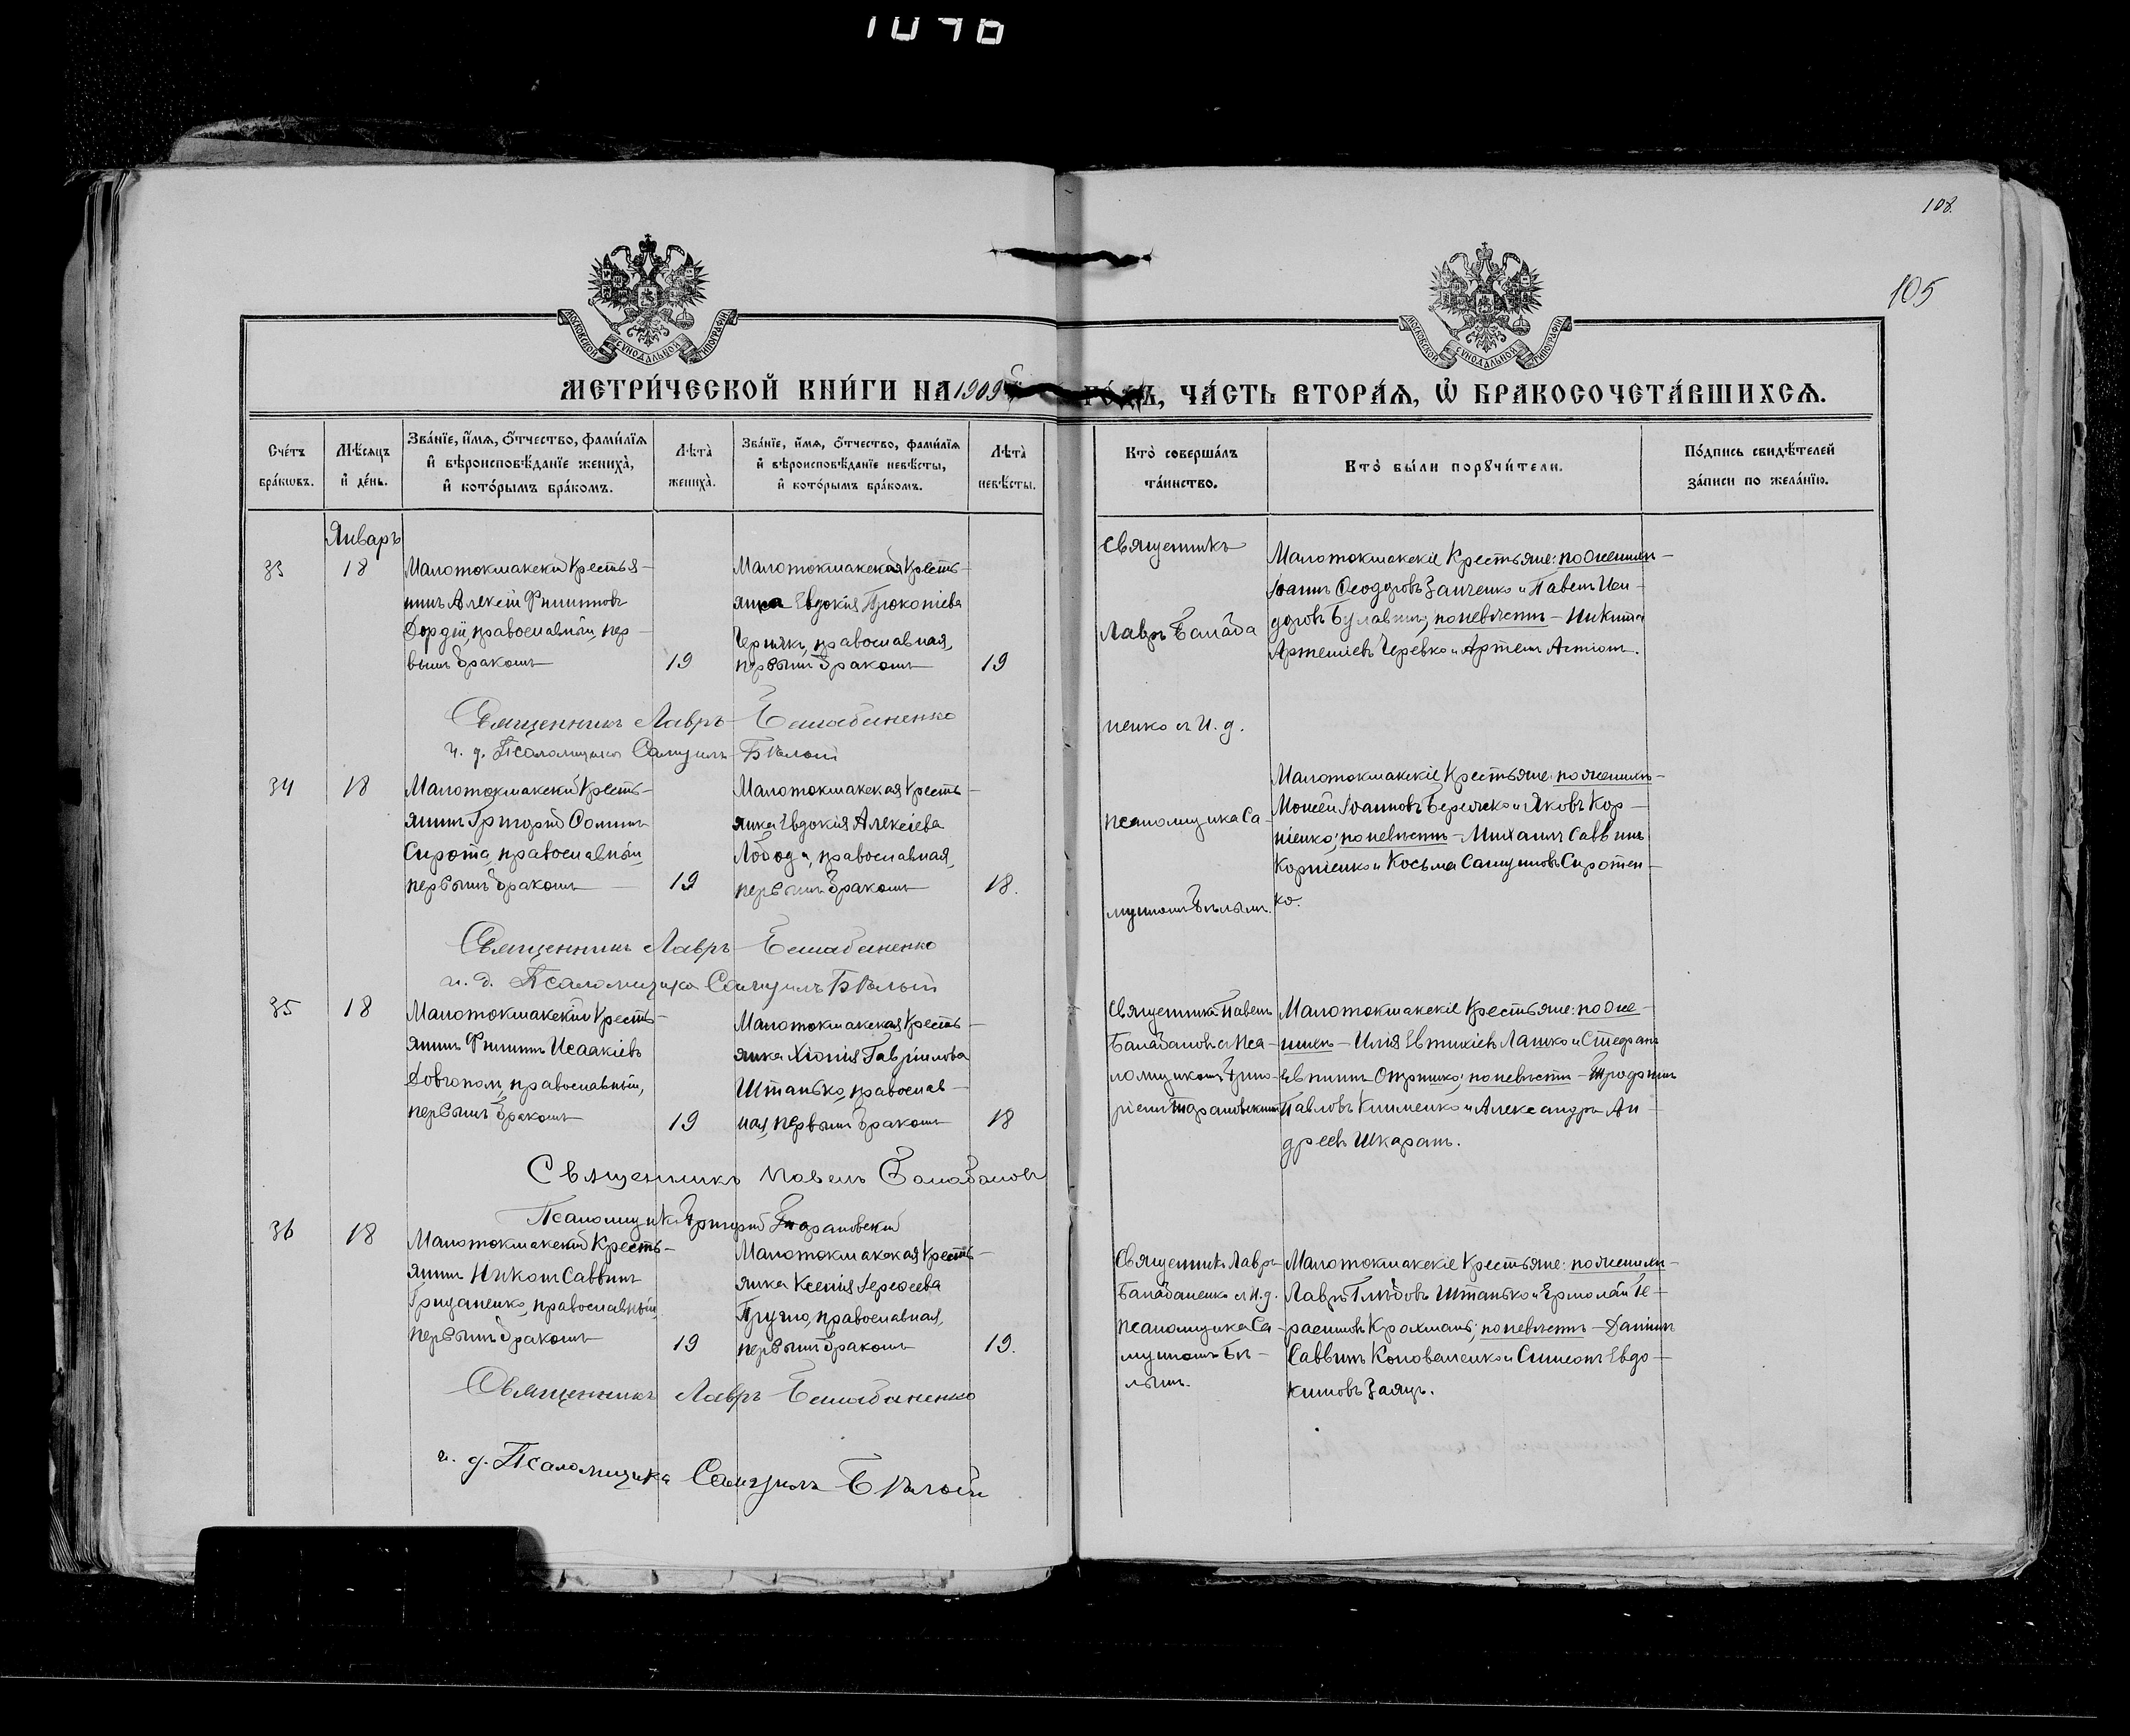 1076
108.
105
МОСКОВСКОЙ СУНОДАЛЬНОЙ ТИПОГРАФІИ
МОСКОВСКОЙ СУНОДАЛЬНОЙ ТИПОГРАФІИ
МЕТРИ́ЧЕСКОЙ КНИ́ГИ НА 1909
ГО́ДЪ, ЧА́СТЬ ВТОРА́Ѧ, Ѡ҆ БРАКОСОЧЕТА́ВШИХСѦ.
Сче́тъ бра́кѡвъ.
Мѣ́сѧцъ и҆ де́нь.
Зва́нїе, и҆́мѧ, ѻ҆́тчество, фами́лїѧ и҆ вѣроисповѣ́данїе жениха̀, и҆ кото́рымъ бра́комъ.
Лѣта̀ жениха̀.
Зва́нїе, и҆́мѧ, ѻ҆́тчество, фами́лїѧ и҆ вѣроисповѣ́данїе невѣ́сты, и҆ кото́рымъ бра́комъ.
Лѣта̀ невѣ́сты.
Кто̀ соверша́лъ та́инство.
Кто̀ бы́ли порꙋчи́тели.
По́дпись свидѣ́телей за́писи по жела́нїю.
Январь
33
18
Малотокмакскій Крестья-
нинъ Алексій Филипповъ
Дордій, православный, пер-
вымъ бракомъ
19
Малотокмакская Кресть-
янка Евдокія Прокопіева
Чернякъ, православная,
первымъ бракомъ
19
Священникъ
Лавръ Балаба
ненко съ И. д.
псаломщика Са-
муиломъ Бѣлымъ.
Малотокмакскіе Крестьяне: по женихѣ-
Іоаннъ Ѳеодоровъ Заиченко и Павелъ Иси-
доровъ Булавинъ; по невѣстѣ - Никита
Артеміевъ Черевко и Артемъ
Священникъ Лавръ Балабаненко
и. д. Псаломщика Самуилъ Бѣлый
34
18
Малотокмакскій Кресть-
янинъ Григорій
Сирота, православный,
первымъ бракомъ
19
Малотокмакская Кресть-
янка Евдокія Алексіева
Лобода, православная,
первымъ бракомъ
18.
Малотокмакскіе Крестьяне: по женихѣ-
Моисей Іоанновъ и Яковъ Кор-
ніенко; по невѣстѣ - Михаилъ Саввинъ
Корніенко и Косьма Самуиловъ Сиротен-
ко.
Священникъ Лавръ Балабаненко
и. д. Псаломщика Самуилъ Бѣлый
35
18
Малотокмакскій Кресть-
янинъ Филиппъ Исаакіевъ
Довгополъ, православный,
первымъ бракомъ
19
Малотокмакская Кресть-
янка Хіонія Гавріилова
Штанько, православ-
ная, первымъ бракомъ
18
Священникъ Павелъ
Балабановъ съ Пса-
ломщикомъ Григо-
ріемъ
Малотокмакскіе Крестьяне: по же-
нихѣ - Илія Евтихіевъ Лашко и Стефанъ
по невѣстѣ - Трофимъ
Павловъ Клименко и Александръ Ан-
дреевъ
Священникъ Павелъ Балабановъ
Псаломщикъ Григорій
36
18
Малотокмакскій Кресть-
янинъ Николай Саввинъ
Грицаненко, православный,
первымъ бракомъ
19
Малотокмакская Кресть-
янка Ксенія
православная,
первымъ бракомъ
19.
Священникъ Лавръ
Балабаненко съ И. д.
псаломщика Са-
муиломъ Бѣ-
лымъ.
Малотокмакскіе Крестьяне: по женихѣ-
Лавръ Глѣбовъ Штанько и Ермолай Ге-
расимовъ Крохмаль; по невѣстѣ - Даніилъ
Саввинъ Коноваленко и Симеонъ Евдо-
кимовъ Заяцъ.
Священникъ Лавръ Балабаненко
и. д. Псаломщика Самуилъ Бѣлый